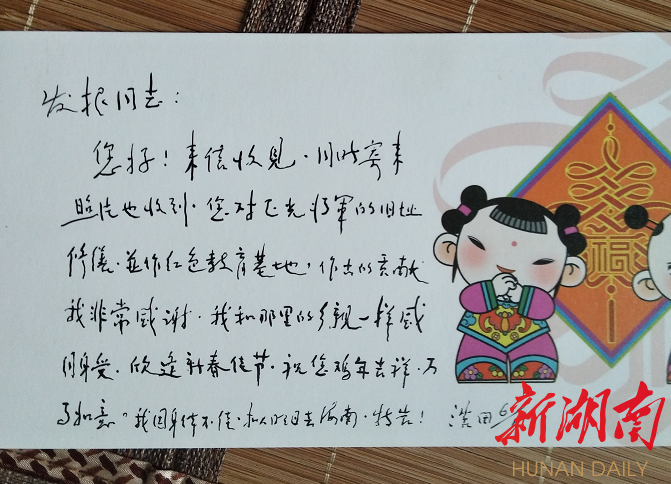 发根同志：
您好！来信收见.同时寄来
照片也收到.您对正光将军的旧址
修缮.并作红色教育基地，作出的贡献
我非常感谢.我和那里的乡亲一样感
同身受.欣逢新春佳节.祝您鸡年吉祥.万
事如意。我因身体不佳.拟明日去海南.特告！
福
新湖南
HUNAN DAILY